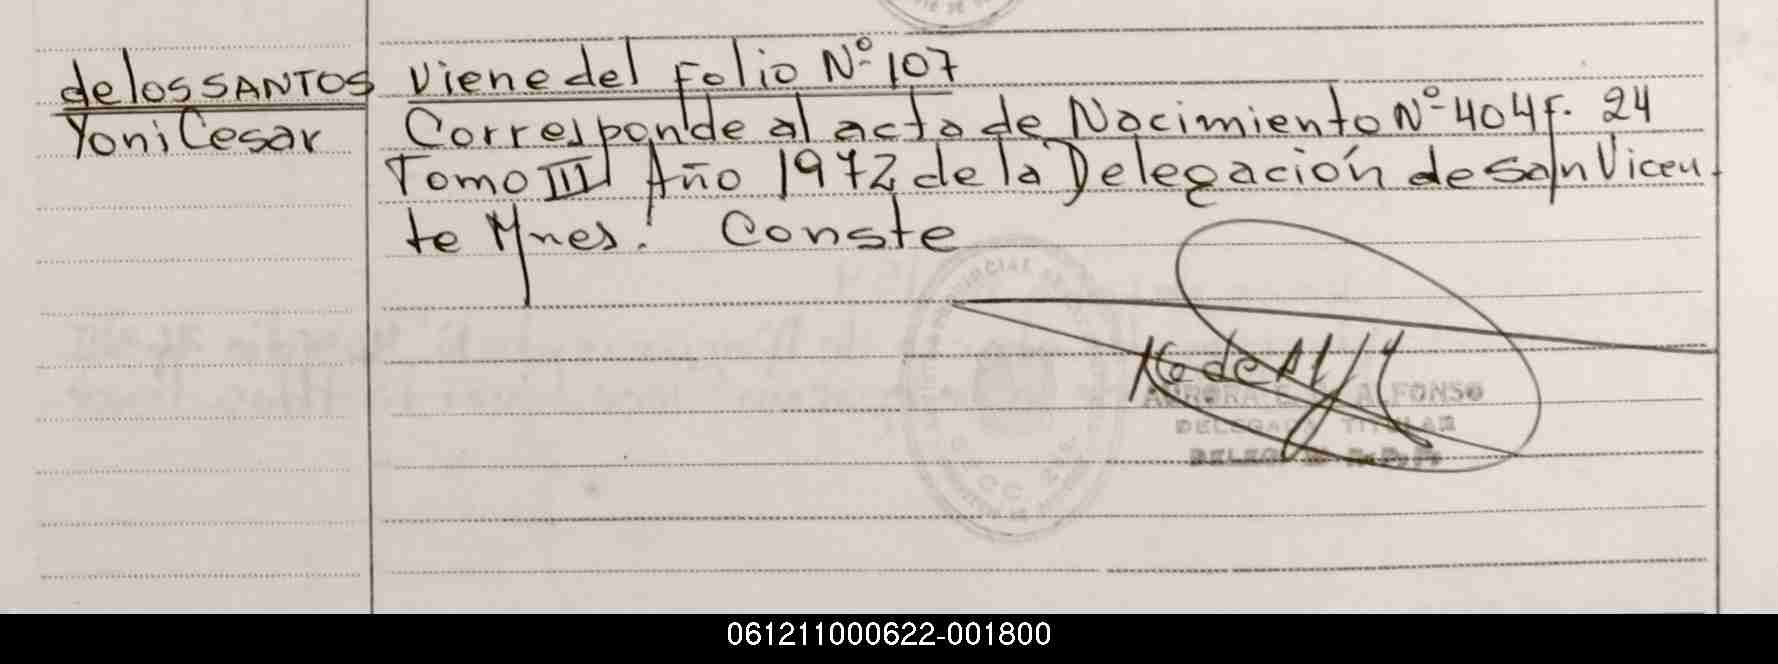 de los SANTOS
Yoni Cesar
Viene del Folio Nº 107
Corresponde al acta de Nacimiento Nº 404 F. 24
Tomo III Año 1972 de la Delegación de San Vicen
te Mnes. Conste
ALFONSO
DELEGADA TITULAR
061211000622-001800